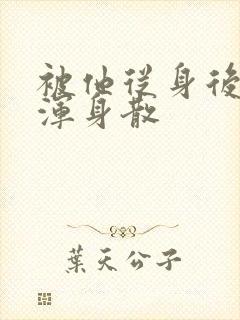 被他從身後
渾身散
葉天公子